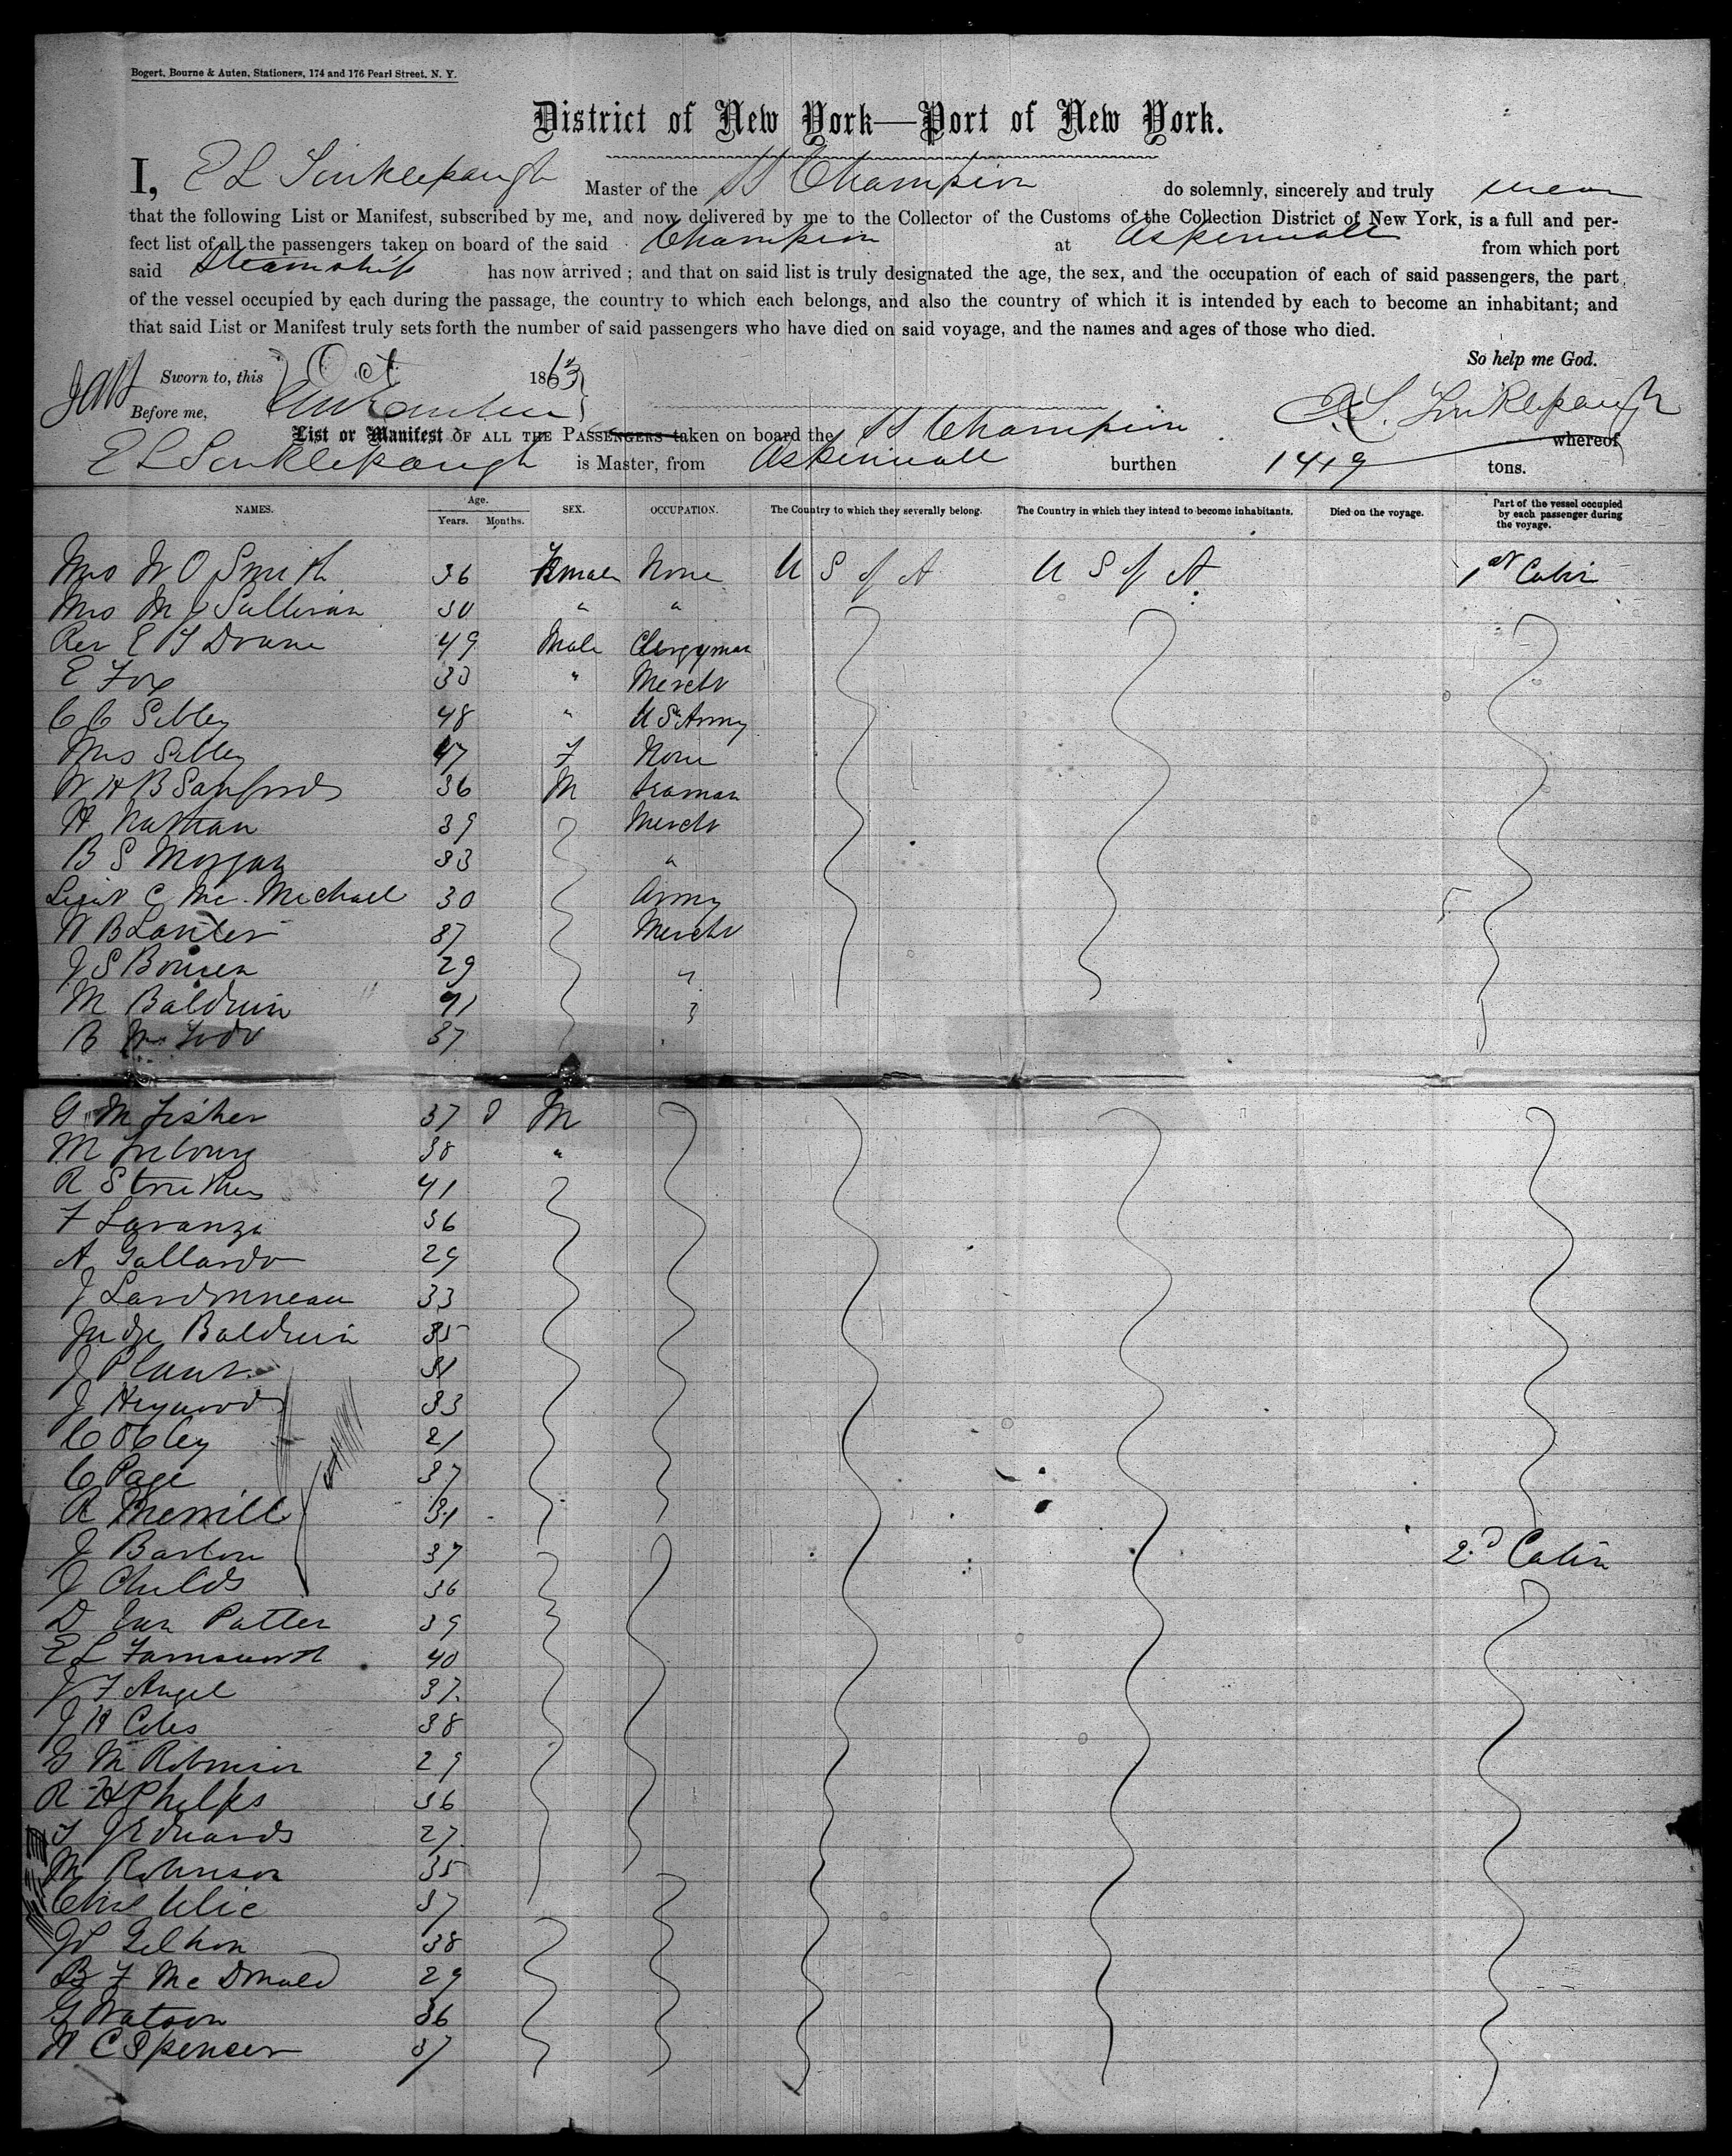 Bogert, Bourne & Auten, Stationers, 174 and 176 Pearl Street, N. Y.
District of New York—Port of New York.
I, E L Tinklepaugh Master of the SS Champion do solemnly, sincerely and truly swear
that the following List or Manifest, subscribed by me, and now delivered by me to the Collector of the Customs of the Collection District of New York, is a full and per-
fect list of all the passengers taken on board of the said Champion at Aspinwall from which port
said Steamship has now arrived; and that on said list is truly designated the age, the sex, and the occupation of each of said passengers, the part
of the vessel occupied by each during the passage, the country to which each belongs, and also the country of which it is intended by each to become an inhabitant; and
that said List or Manifest truly sets forth the number of said passengers who have died on said voyage, and the names and ages of those who died.
So help me God.
Sworn to, this Oct 1863
Before me, E L Tinklepaugh
List or Manifest OF ALL THE PASSENGERS taken on board the SS Champion whereof
E L Tinklepaugh is Master, from Aspinwall burthen 1419 tons.
NAMES. Age. Years. Months. SEX. OCCUPATION. The Country to which they severally belong. The Country in which they intend to become inhabitants. Died on the voyage. Part of the vessel occupied by each passenger during the voyage.
Mrs W O Smith 36 Female None U S of A U S of A 1st Cabin
Mrs M J Sullivan 30 " "
Rev E T Doane 49 Male Clergyman
E Fox 33 " Mercht
C C Sibley 48 " U S Army
Mrs Sibley 47 F None
W H B Sanfords 36 M Seaman
H Nathan 39 Mercht
B S Morgan 33 "
Lieut C Mc Michael 30 Army
W B Lanter 37 Mercht
J S Bowen 29 "
M Baldwin 41 "
B M 37
G M Fisher 37 M
M 38 "
R Struthers 41
F Laranza 36
A Gallardo 29
J Lardonneau 33
Judge Baldwin 35
J Plant 31
J Heywood 33
C 21
C Page 37
R Merrill 31
J Barton 37 2d Cabin
J Childs 36
D Van Patten 39
E L Farnsworth 40
J F Angel 37
J H Coles 38
G M Robinson 29
R H Phelps 36
T J Edwards 27
M Robinson 35
Chas 37
38
B F Mc Donald 29
G Watson 36
H C Spencer 37